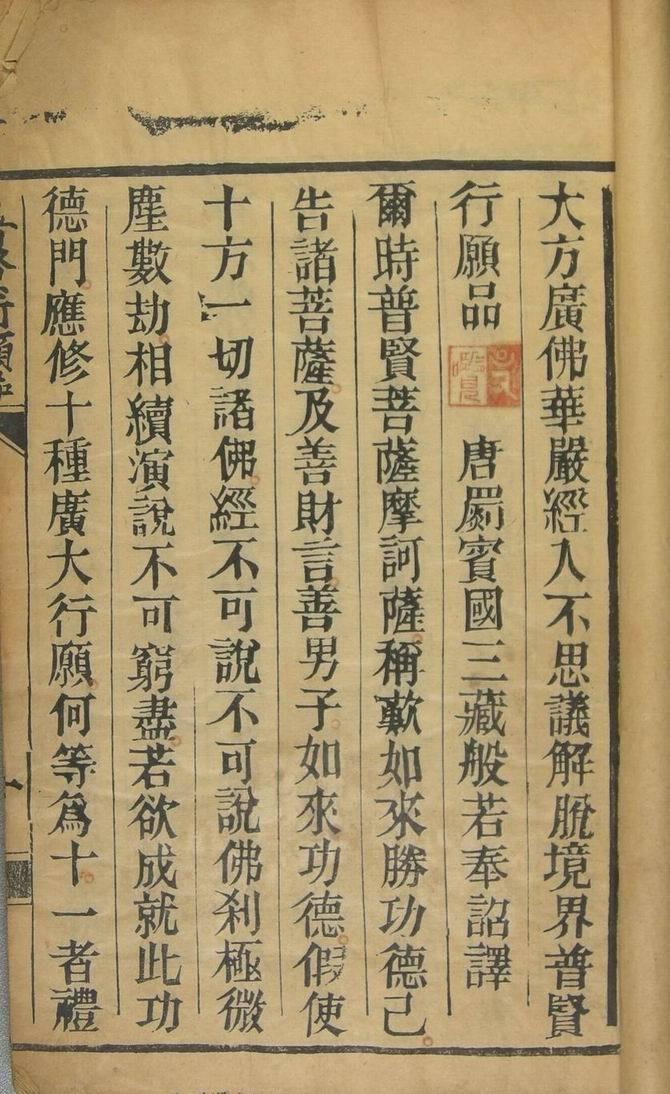 大方廣佛華嚴經入不思議解脫境界普賢
行願品 唐罽賓國三藏般若奉詔譯
爾時普賢菩薩摩訶薩稱歎如來勝功德已
告諸菩薩及善財言善男子如來功德假使
十方一切諸佛經不可說不可說佛刹極微
塵數劫相續演說不可窮盡若欲成就此功
德門應修十種廣大行願何等爲十一者禮
行願品